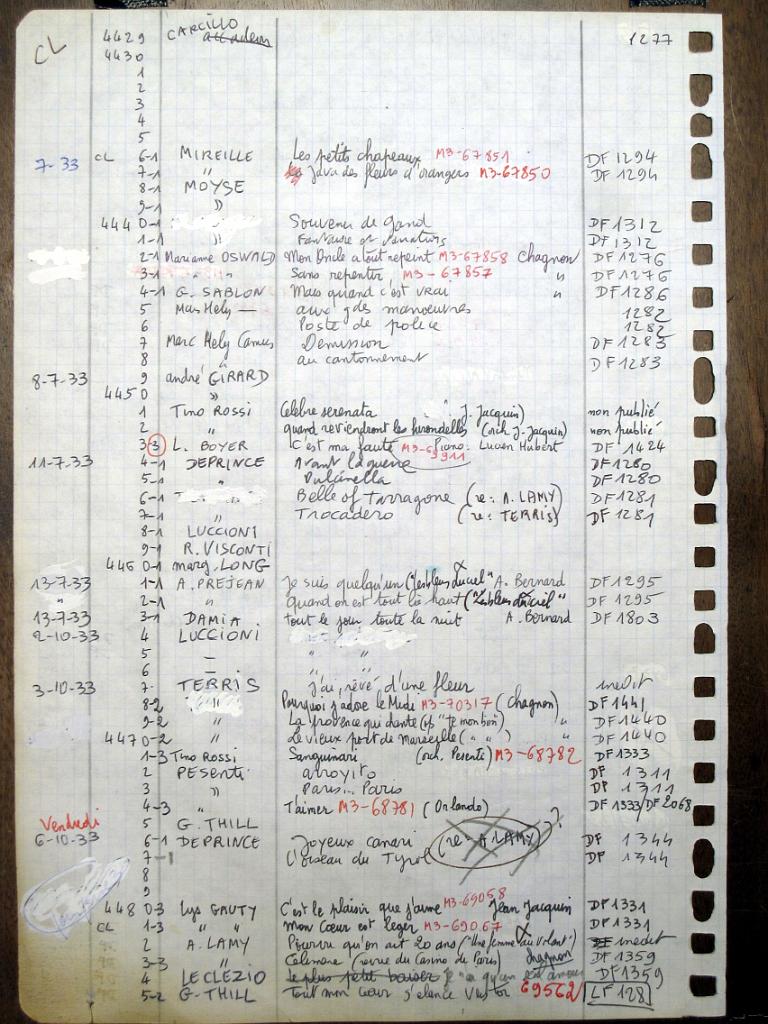 CL 4429 CARCILLO 1277
4430
1
2
3
4
5
7-33 CL 6-1 MIREILLE Les petits chapeaux M3-67851 DF 1294
7-1 " Java des fleurs d'orangers M3-67850 DF 1294
8-1 MOYSE
9-1 "
444 0-1 Souvenir de gand DF 1312
1-1 " DF 1312
2-1 Marianne OSWALD Mon Oncle a tout repeint M3-67858 Chagnon DF 1276
3-1 " " Sans repentir M3-67857 " DF 1276
4-1 G. SABLON Mais quand c'est vrai " DF 1286
5 Mas Hely — aux gdes manoeuvres 1282
6 Poste de police 1282
7 Marc Hely Camus Demission DF 1283
8 " au cantonnement DF 1283
8-7-33 9 andré GIRARD
445 0 "
1 Tino ROSSI Celebre serenata " J. Jacquin) non publié
2 " quand reviendront les hirondelles (orch. J. Jacquin) non publié
3-3 L. BOYER C'est ma faute M3-6 911 Piano: Lucien Hubert DF 1424
11-7-33 4-1 DEPRINCE Avant la guerre DF 1280
5-1 Dulcinella DF 1280
6-1 Belle of Tarragone (re: A. LAMY) DF 1281
7-1 " Trocadero (re: TERRIS) DF 1281
8-1 LUCCIONI
9-1 R. VISCONTI
446 0-1 marg. LONG
13-7-33 1-1 A. PREJEAN Je suis quelqu'un ("les bleus du ciel" A. Bernard DF 1295
" 2-1 " quand on est tout là haut ("Les bleus du ciel" DF 1295
13-7-33 3-1 DAMIA tout le jour toute la nuit A. Bernard DF 1803
2-10-33 4 LUCCIONI
5 — " "
6 — " "
3-10-33 7- TERRIS j'ai rêvé d'une fleur inedit
8-2 Pourquoi j'adore le Midi M3-70317 (Chagnon) DF 1441
9-2 " La provence qui chante (of "te mon bon") " DF 1440
447 0-2 " Le vieux port de Marseille (" ") " DF 1440
1-3 Tino Rossi Sanguinari (orch. Pesenti) M3-68782 DF 1333
2 PESENTI arroyito DF 1311
3 " Paris.. Paris DF 1311
4-3 " T'aimer M3-68781 (Orlando) DF 1333/DF 2068
Vendredi 5 G. THILL
6-10-33 6-1 DEPRINCE Joyeux canari (re: A LAMY) ? DF 1344
7-1 L'oiseau du Tyrol DF 1344
8
9
448 0-3 Lys GAUTY C'est le plaisir que j'aime M3-69058 Jean Jacquin DF 1331
CL 1-3 " " Mon Coeur est leger M3-69067 DF 1331
2 A. LAMY Pourvu qu'on ait 20 ans ("Une femme au volant") inedit
3-3 " Celimene (revue du Casino de Paris) chagnon DF 1359
4 LECLEZIO Le plus petit baiser DF 1359
5-2 G. THILL Tout mon coeur s'elance 69562 LF 128